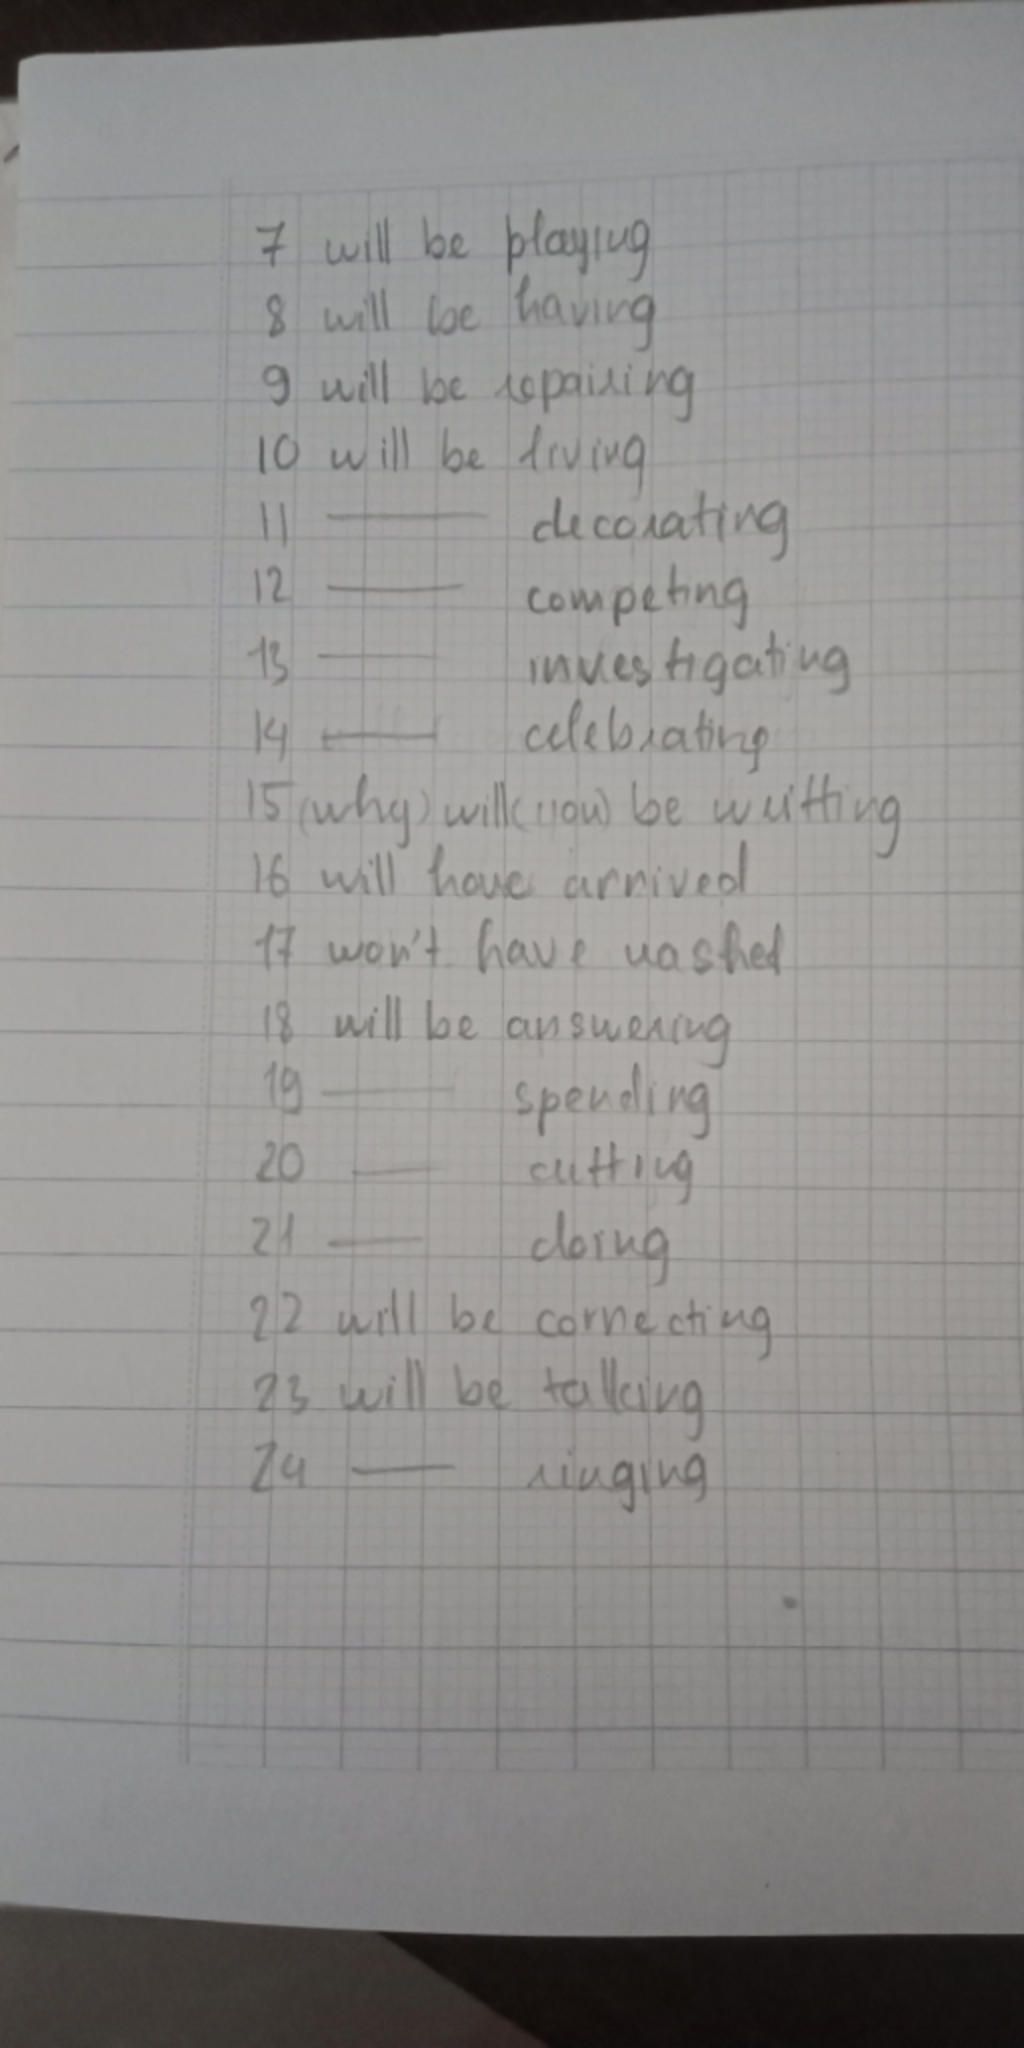 7 will be playing
8 will be having
9 will be repairing
10 will be living
11 —— decorating
12 —— competing
13 —— investigating
14 —— celebrating
15 (why) will (you) be writting
16 will have arrived
17 won't have washed
18 will be answering
19 —— spending
20 —— cutting
21 —— doing
22 will be correcting
23 will be talking
24 —— ringing